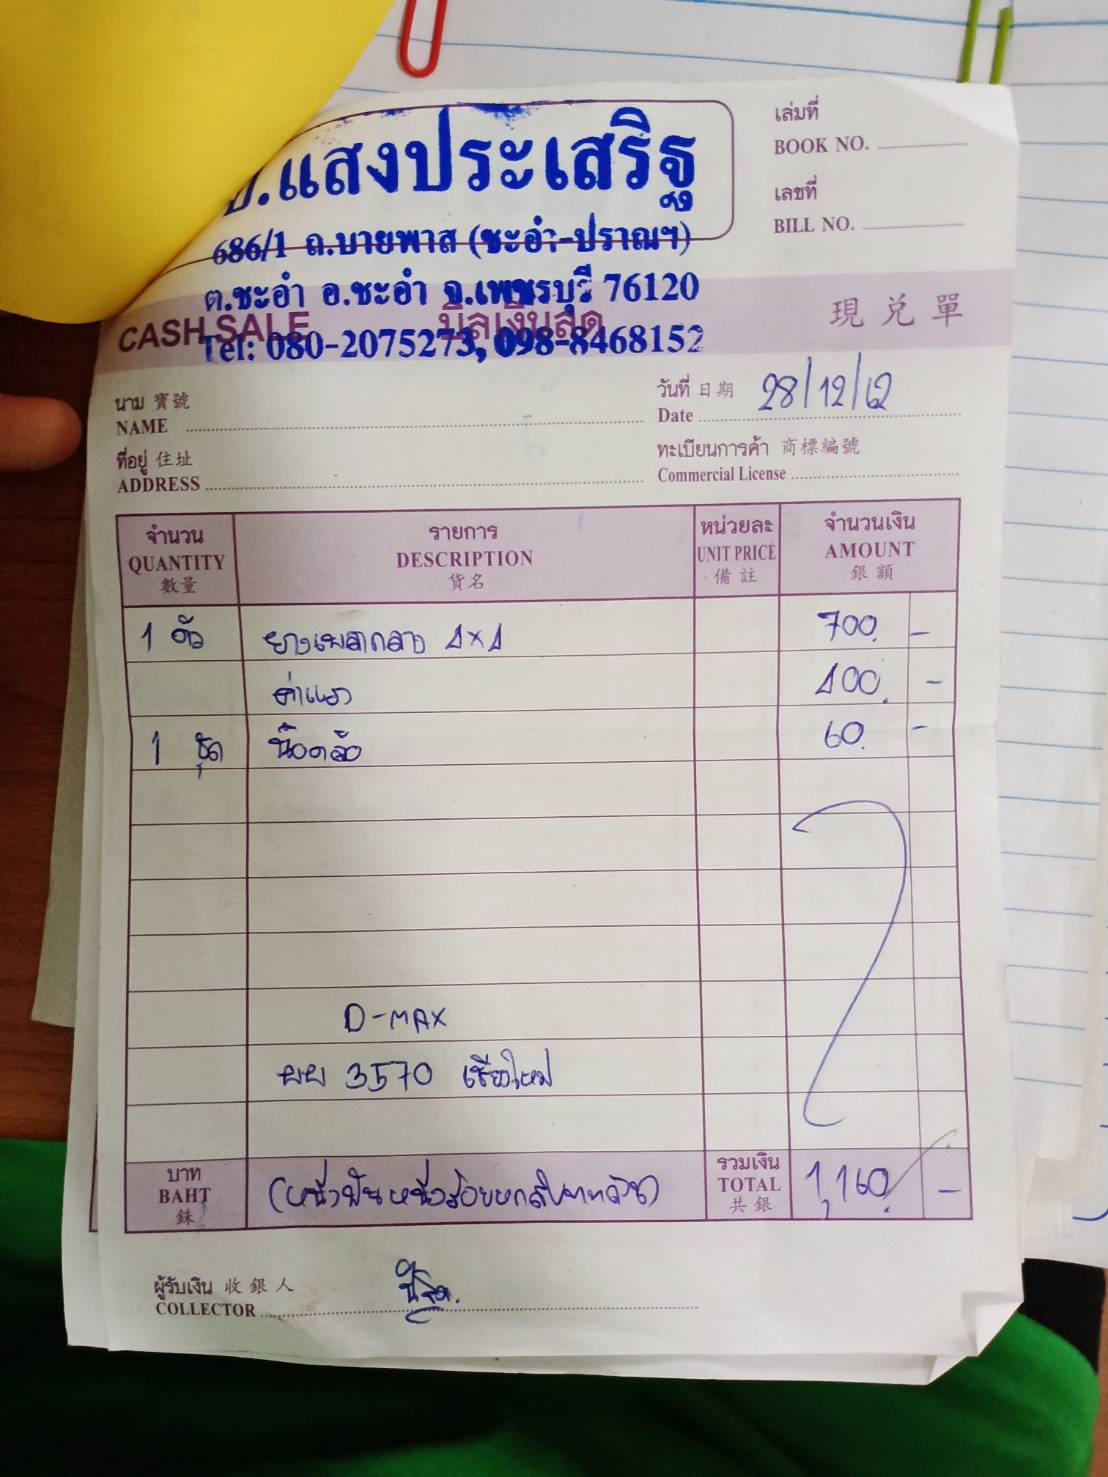 .แสงประเสริฐ
686/1 ถ.บายพาส (ชะอำ-ปราณฯ)
ต.ชะอำ อ.ชะอำ จ.เพชรบุรี 76120
Tel: 080-2075273, 098-8468152
เล่มที่
BOOK NO.
เลขที่
BILL NO.
CASH SALE บิลเงินสด 現兑單
นาม 寳號
NAME
วันที่ 日期 28/12/62
Date
ที่อยู่ 住址
ADDRESS
ทะเบียนการค้า 商標編號
Commercial License
จำนวน รายการ หน่วยละ จำนวนเงิน
QUANTITY DESCRIPTION UNIT PRICE AMOUNT
數量 貨名 備註 銀額
1 ตัว ยางเพลากลาง 4x4 700. -
ค่าแรง 400. -
1 ชุด น๊อตล้อ 60. -
D-MAX
ผผ 3570 เชียงใหม่
บาท
BAHT
銖
(หนึ่งพันหนึ่งร้อยหกสิบบาทถ้วน)
รวมเงิน
TOTAL
共銀
1,160. -
ผู้รับเงิน 收銀人
COLLECTOR